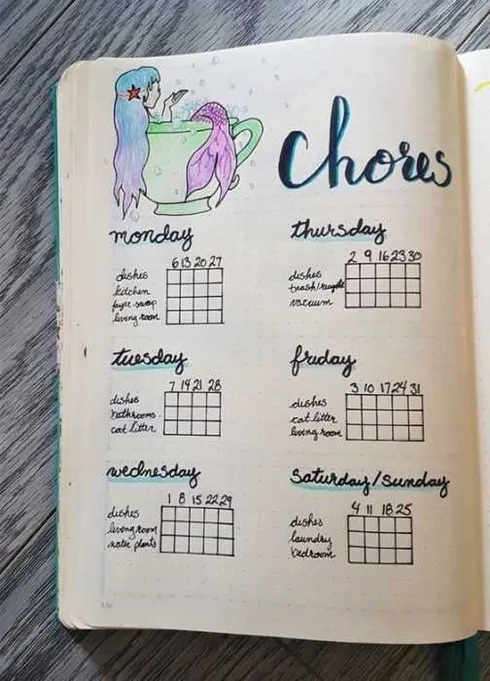 chores
monday
6 13 20 27
dishes
kitchen
living room
thursday
2 9 16 23 30
dishes
trash/recycle
vacuum
tuesday
7 14 21 28
dishes
bathrooms
cat litter
friday
3 10 17 24 31
dishes
cat litter
living room
wednesday
1 8 15 22 29
dishes
living room
water plants
saturday/sunday
4 11 18 25
dishes
laundry
bedroom